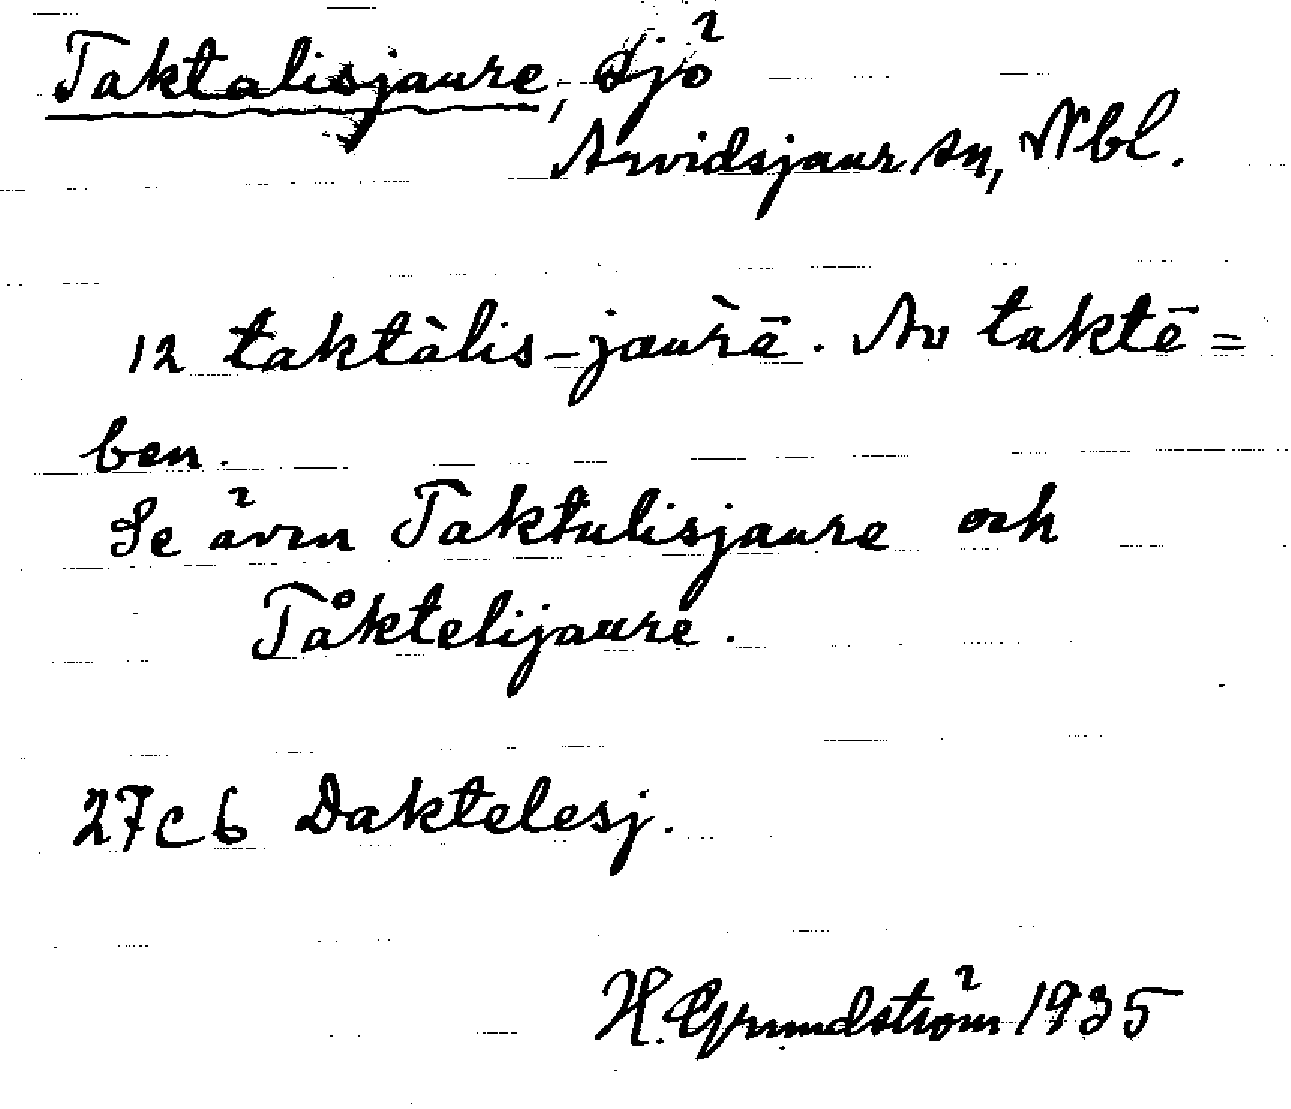 Taktalisjaure, sjö
Arvidsjaur sn, Nbl.
12 taktàlis-jaùrē. Av taktē =
ben.
Se även Taktulisjaure och
Tåktelijaure.
27c6 Daktelesj.
H. Grundström 1935